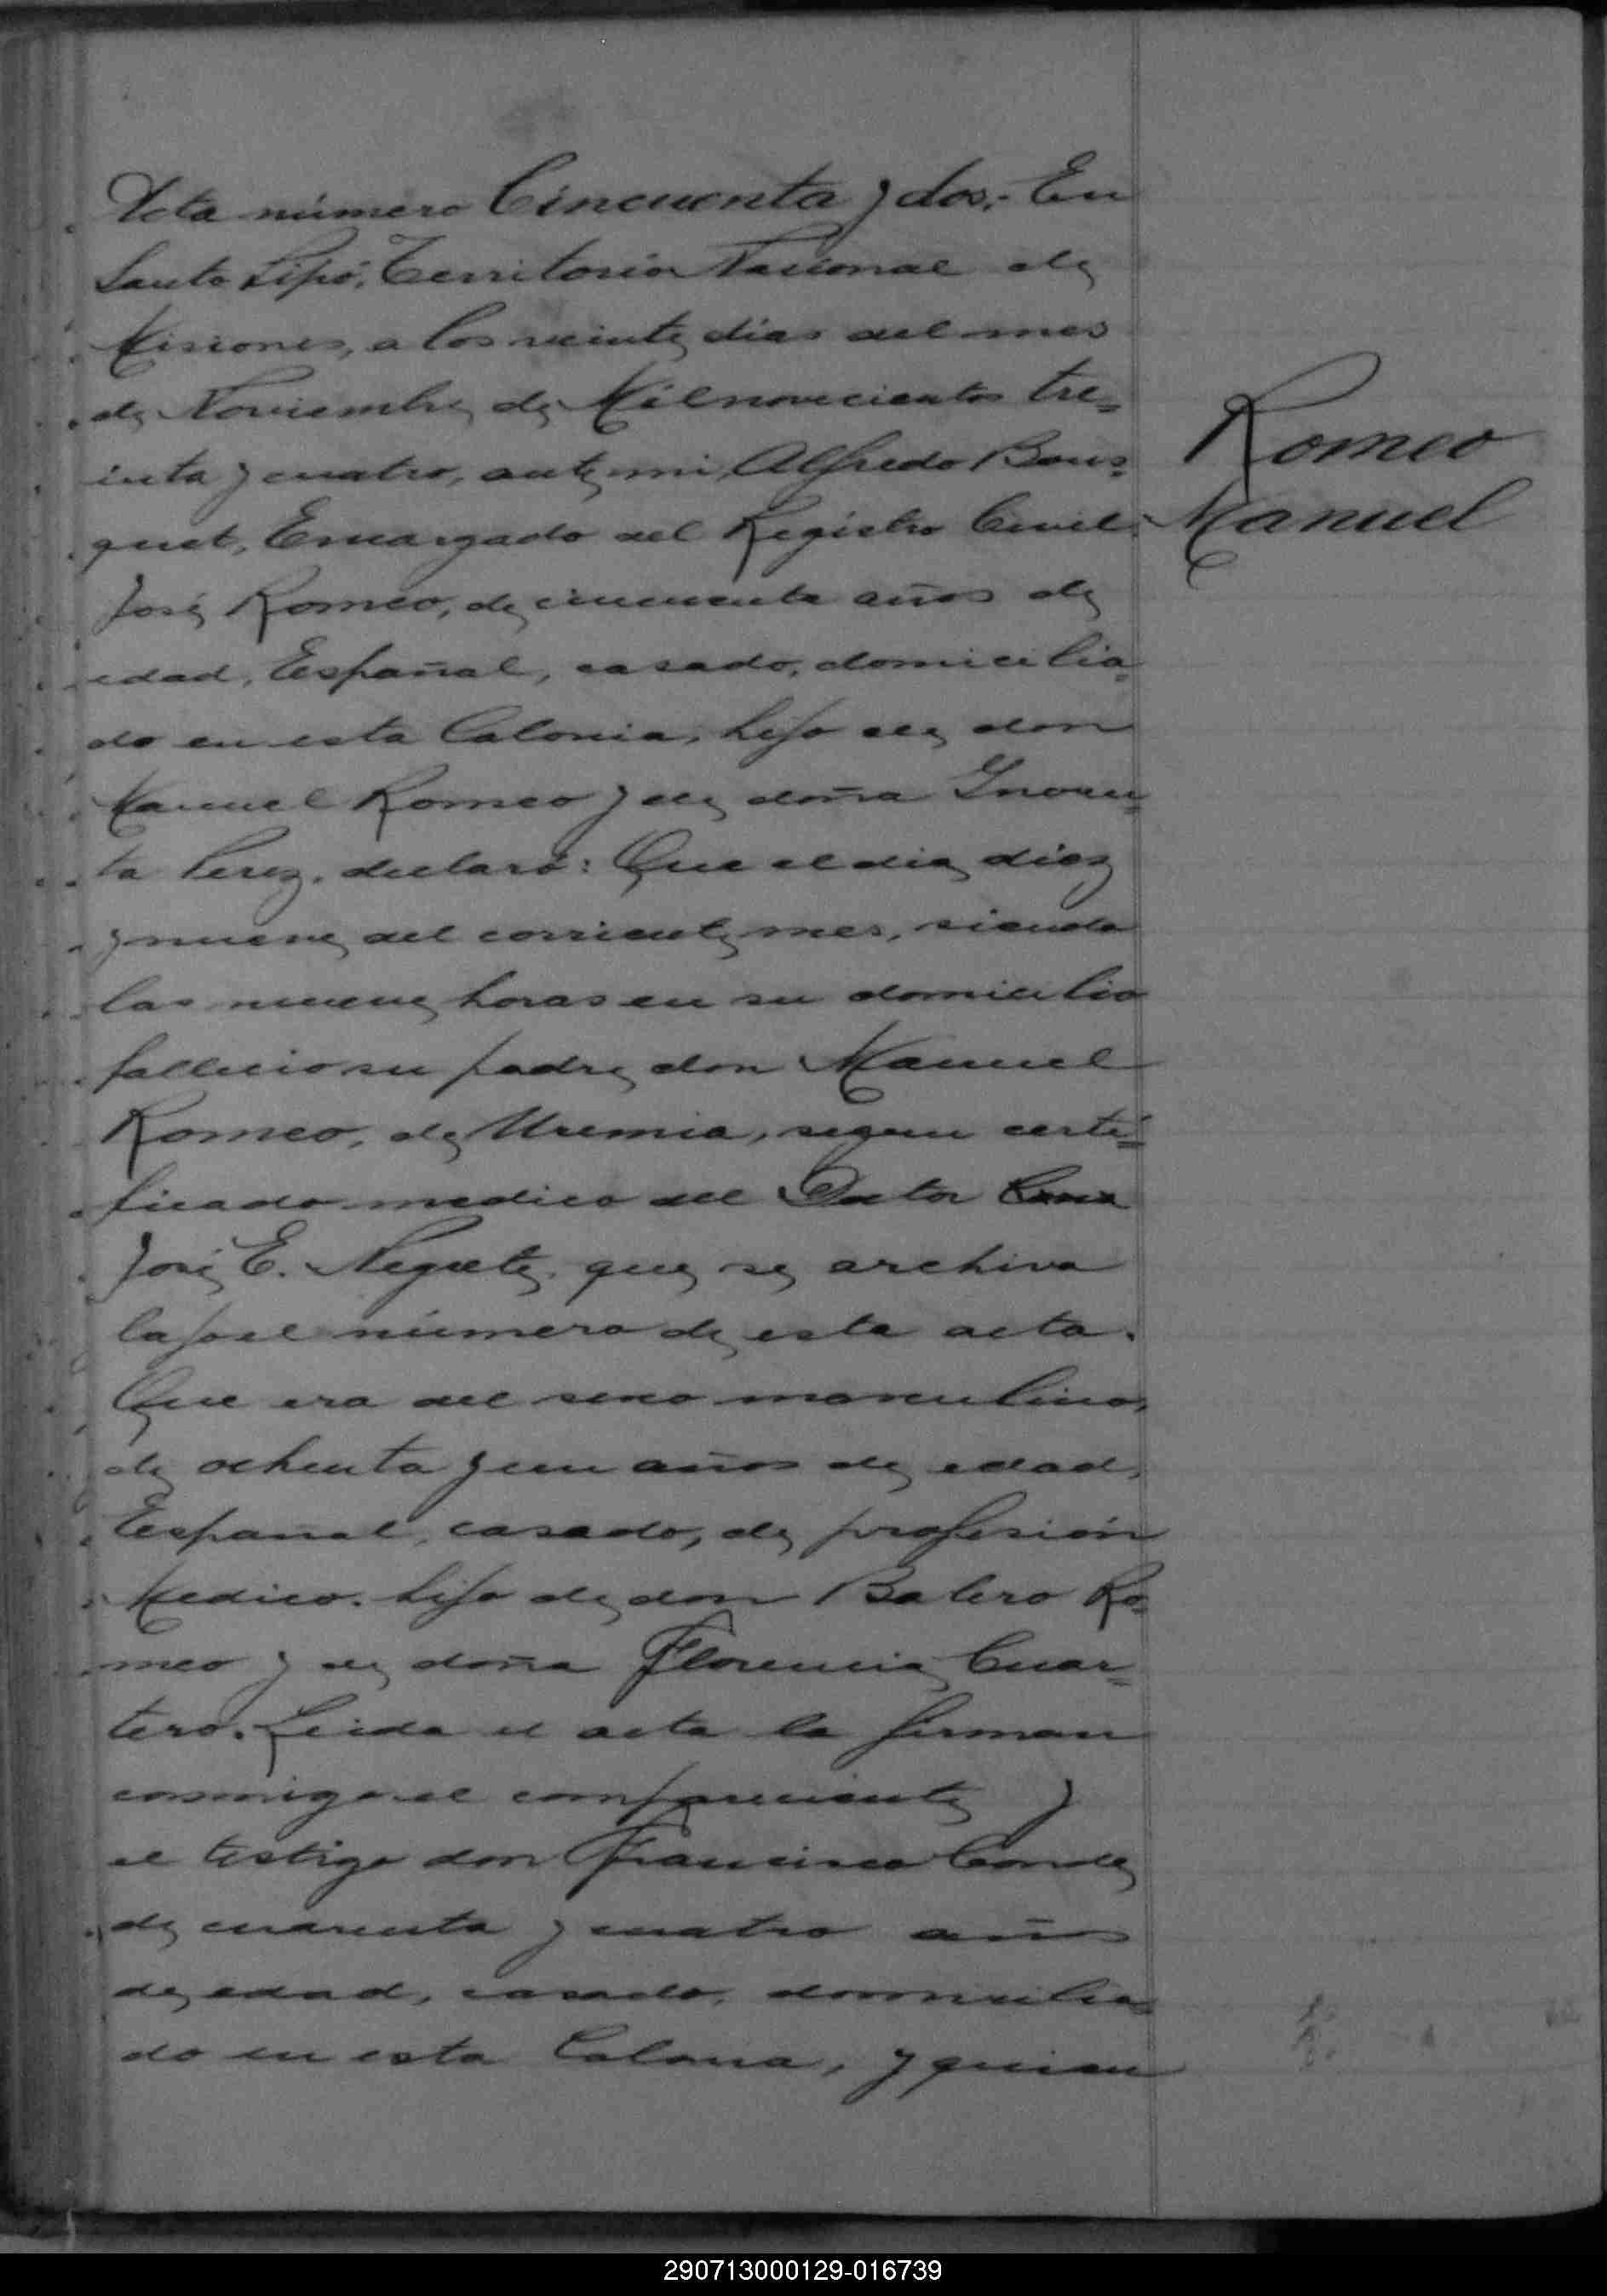 Acta número Cincuenta y dos.- En
Santo Pipó, Territorio Nacional de
Misiones, a los veinte días del mes
de Noviembre de Mil novecientos tre=
inta y cuatro, ante mi, Alfredo Bous=
quet, Encargado del Registro Civil.
Romeo
Manuel
José Romeo, de cincuenta años de
edad, Español, casado, domicilia=
do en esta Colonia, hijo de don
Manuel Romeo y de doña Inocen=
ta Perez, declaró: Que el dia diez
y nueve del corriente mes, siendo
las nueve horas en su domicilio
fallecio su padre don Manuel
Romeo, de Uremia, segun certi=
ficado medico del Doctor
José E. Negrete, que se archiva
bajo el número de esta acta.
Que era del sexo masculino,
de ochenta y un años de edad,
Español, casado, de profesión
Medico. hijo de don Balero Ro=
meo y de doña Florencia Cuar=
tero. Leida el acta la firman
conmigo el compareciente y
el testigo don Francisco Conde
de cuarenta y cuatro años
de edad, casado, domicilia=
do en esta Colonia, y quien
290713000129-016739